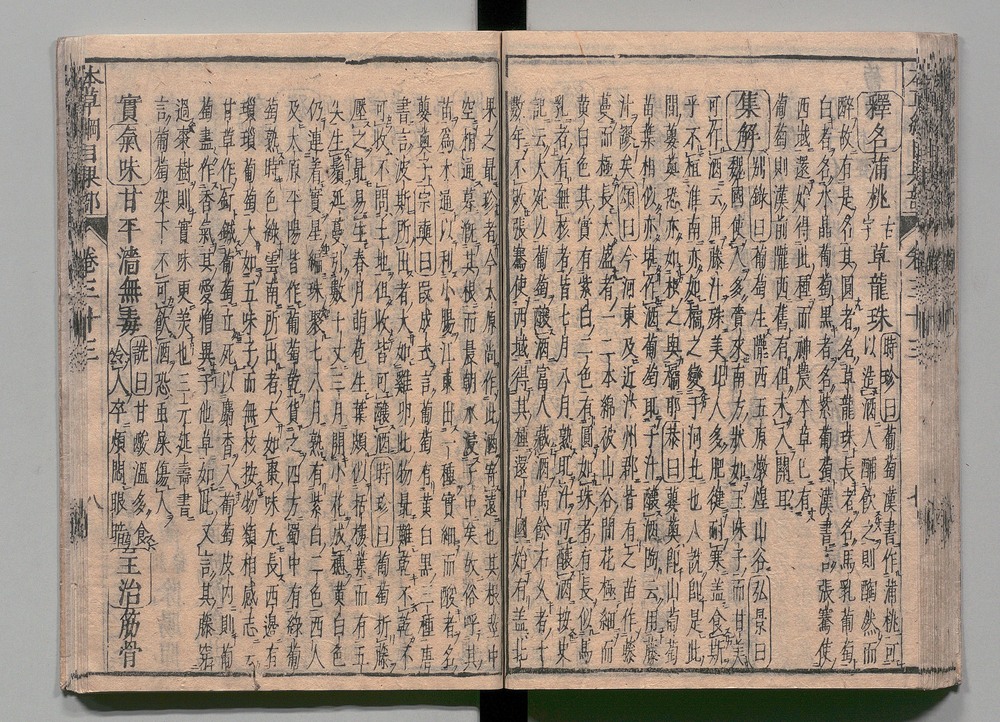 釋名蒲桃古字草龍珠時珍曰葡萄漢書作蒲桃可以造酒人酺飲之則醄然而
醉故有是名其圓者名草龍珠長者名馬乳葡萄
白者名水晶葡萄黑者名紫葡萄漢書言張騫使
西域還始得此種而神農本草已有
葡萄則漢前隴西舊有但未入關耳
集解別錄曰葡萄生隴西五原燉煌山谷弘景曰
魏國使人多齎來南方狀如五味子而甘美
可作酒云用藤汁殊美北人多肥健耐寒盖食斯
乎不植淮南亦如橘之變于河北也人說即是此
間蘡薁恐亦如枳之與橘耶恭曰蘡薁即山葡萄
苗葉相似亦堪作酒葡萄取子汁釀酒陶云用藤
汁謬矣頌曰今河東及近汴州郡皆有之苗作藤
蔓而極長大盛者一二本綿被山谷間花極細而
黃白色其實有紫白二色有圓如珠者有長似馬
乳者有無核者皆七月八月熟取汁可釀酒按史
記云大宛以葡萄釀酒富人藏酒萬餘石久者十
數年不敗張騫使西域得其種還中國始有盖北
果之最珍者今太原尚作此酒寄遠也其根莖中
空相通暮溉其根而晨朝水浸子中矣故俗呼其
苗爲木通以利小腸江東出一種實細而酸者名
蘡薁子宗奭曰段成式言葡萄有黃白黑三種唐
書言波斯所出者大如雞卵此物最難乾不乾不
可收不問土地但收皆可釀酒時珍曰葡萄折藤
壓之最易生春月萌苞生葉頗似栝樓葉而有五
尖生鬚延蔓引數十丈三月開小花成穗黃白色
仍連着實星編珠聚七八月熟有紫白二色西人
及太原平陽皆作葡萄乾貨之四方蜀中有綠葡
萄熟時色綠雲南所出者大如棗味尤長西邊有
瑣瑣葡萄大如五味子而無核按物類相感志云
甘草作釘鍼葡萄立死以麝香入葡萄皮內則葡
萄盡作香氣其愛憎異于他草如此又言其藤穿
過棗樹則實味更美也三元延壽書
言葡萄架下不可飲酒恐虫屎傷人
實氣味甘平濇無毒詵曰甘酸溫多食令人卒煩悶眼暗主治筋骨
本草綱目果部 卷三十三 八